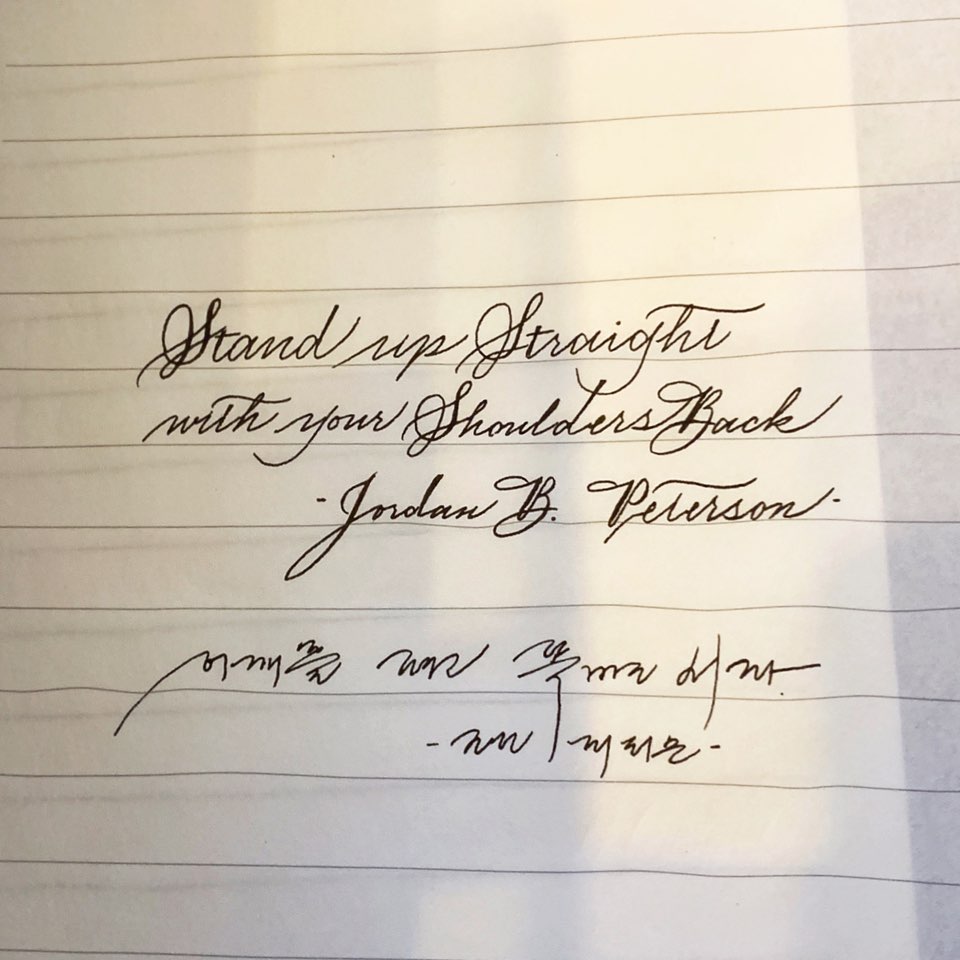 Stand up Straight
with your Shoulders Back
- Jordan B. Peterson -
어깨를 펴고 똑바로 서라.
- 조던 피터슨 -